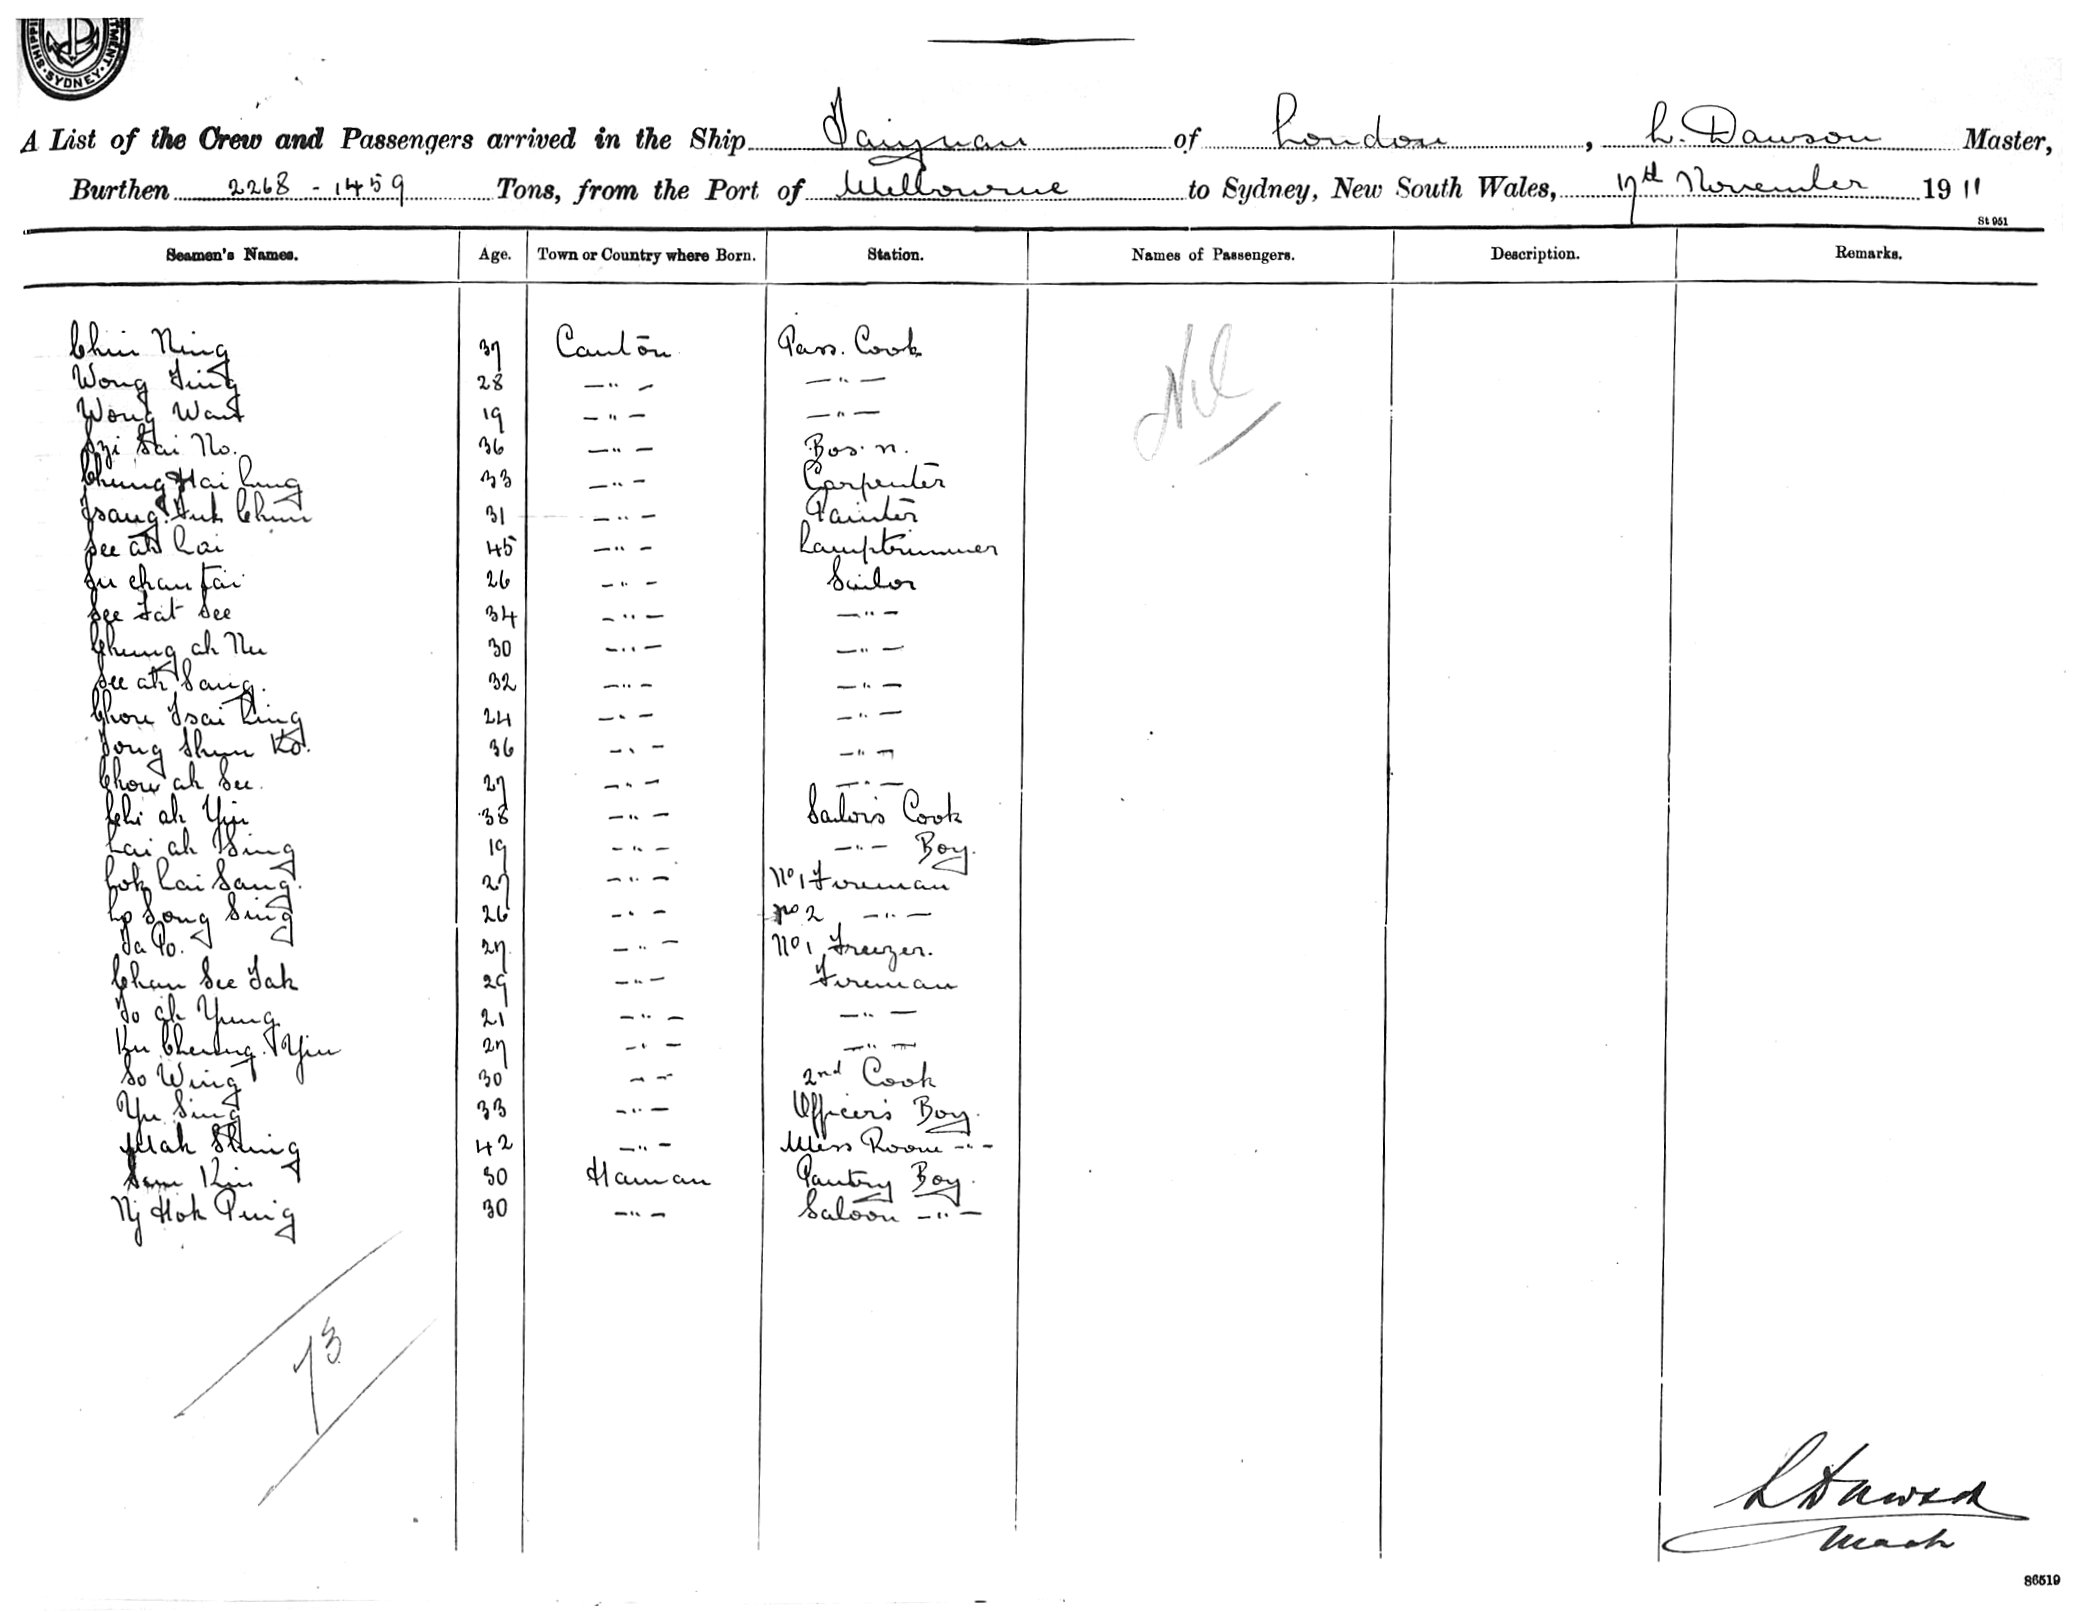 SHIPPING DEPARTMENT. SYDNEY.
A List of the Crew and Passengers arrived in the Ship Taiyuan of London, L. Dawson Master,
Burthen 2268 - 1459 Tons, from the Port of Melbourne to Sydney, New South Wales, 17th November 1911
St 951
Seamen's Names. Age. Town or Country where Born. Station. Names of Passengers. Description. Remarks.
Chin Ning 37 Canton Pass. Cook Nil
Wong Ting 28 —"— —"—
Wong Wan 19 —"— —"—
Szi Sai No. 36 —"— Bos.n.
Chung Hai Lung 33 —"— Carpenter
Tsang Fuk Chun 31 —"— Painter
See ah Lai 45 —"— Lamptrimmer
Su chan tai 26 —"— Sailor
See Fat See 34 —"— —"—
Chung ah Nu 30 —"— —"—
See ah Sang. 32 —"— —"—
Chou Tsai Ling 24 —"— —"—
Tong Shun Ko. 36 —"— —"—
Chow ah See. 27 —"— —"—
Chi ah Yin 38 —"— Sailors Cook
Lai ah Sing 19 —"— —"— Boy.
Lok Lai Sang. 27 —"— No 1 Fireman
Lo Song Sing 26 —"— No 2 —"—
Ta Po. 27 —"— No 1, Freezer.
Chan See Tak 29 —"— Fireman
To ah Yung 21 —"— —"—
Ku Cheung Yiu 27 —"— —"—
So Wing 30 —"— 2nd Cook
Yu Sing 33 —"— Officer's Boy.
Mak Shing 42 —"— Mess Room —"—
Sam Kin 30 Hainan Pantry Boy.
Ng Hok Ping 30 —"— Saloon —"—
73
L Dawson
Mast
86519